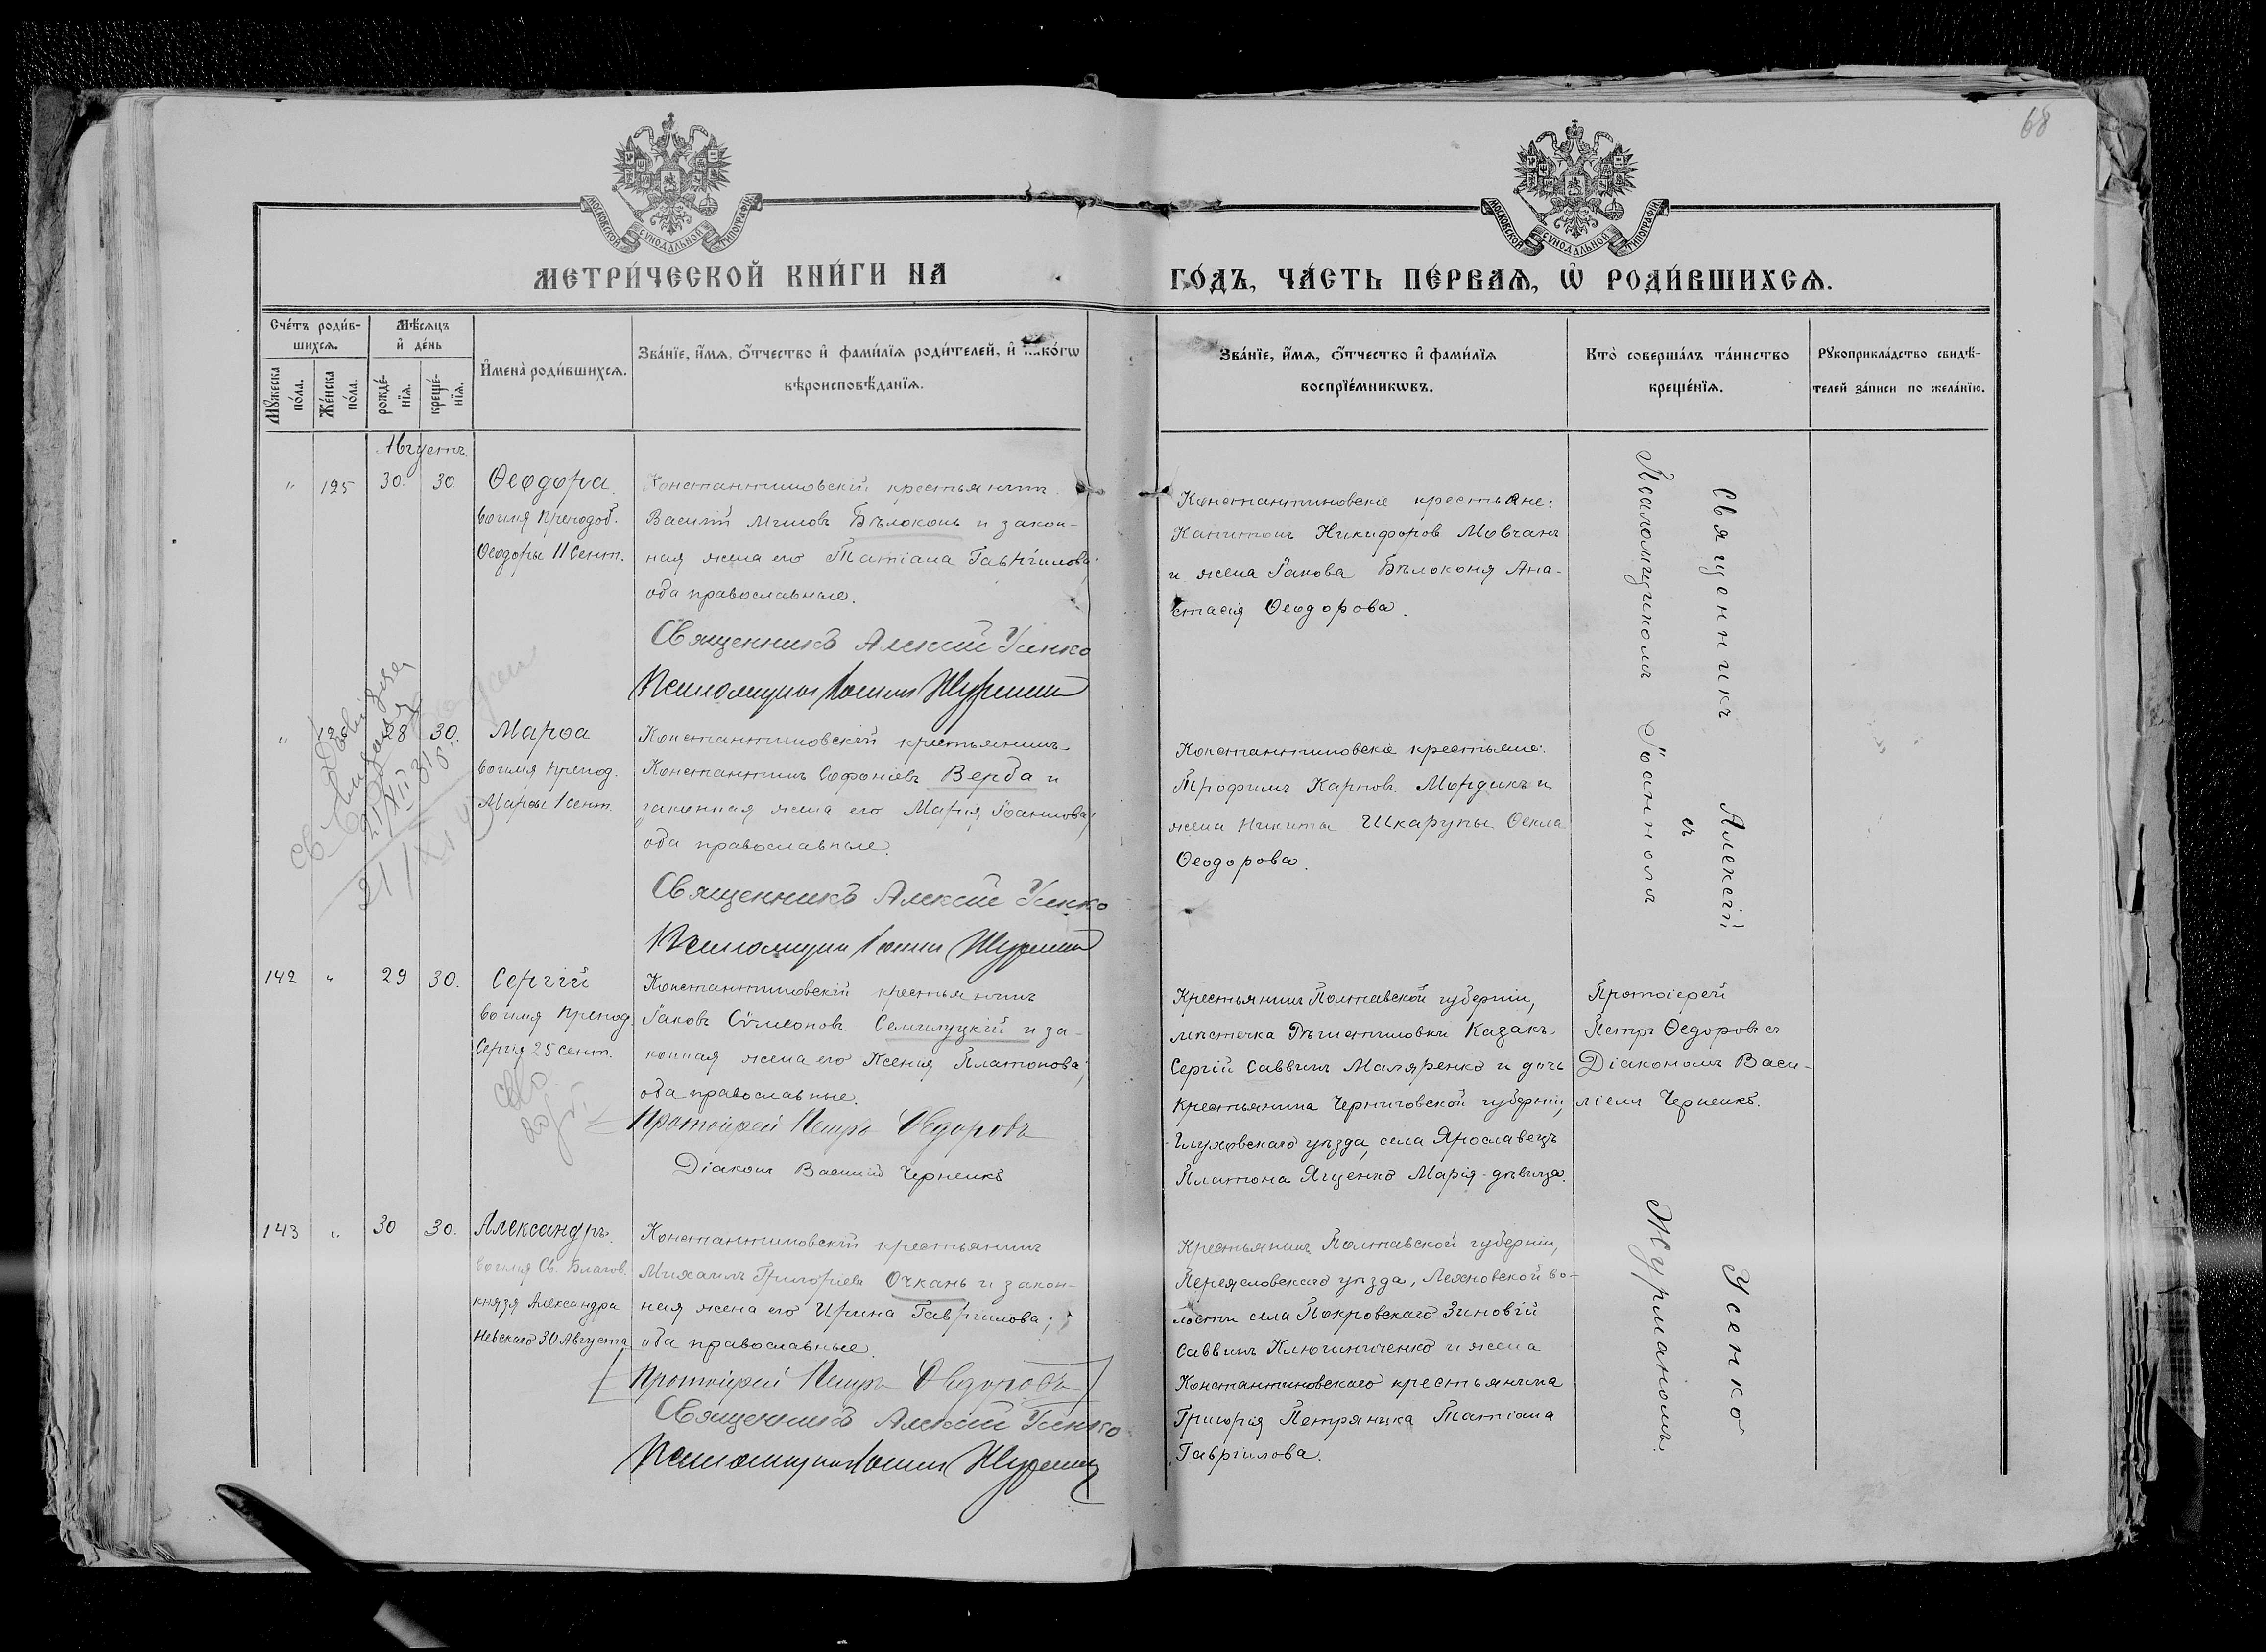 68
МОСКОВСКОЙ СѴНОДАЛЬНОЙ ТИПОГРАФІИ
МОСКОВСКОЙ СѴНОДАЛЬНОЙ ТИПОГРАФІИ
МЕТРИ́ЧЕСКОЙ КНИ́ГИ НА
ГО́ДЪ, ЧА́СТЬ ПЕ́РВАѦ, Ѡ҆ РОДИ́ВШИХСѦ.
Сче́тъ роди́в-
шихсѧ.
Мꙋ́жеска
по́ла.
Же́нска
по́ла.
Мѣ́сѧцъ
и҆ де́нь
рожде́-
нїѧ.
креще́-
нїѧ.
И҆мена̀ роди́вшихсѧ.
Зва́нїе, и҆́мѧ, ѻ҆́тчество и҆ фами́лїѧ роди́телей, и҆ како́гѡ
вѣроисповѣ́данїѧ.
Зва́нїе, и҆́мѧ, ѻ҆́тчество и҆ фами́лїѧ
воспрїе́мникѡвъ.
Кто̀ соверша́лъ та́инство
креще́нїѧ.
Рꙋкоприкла́дство свидѣ́-
телей за́писи по жела́нїю.
Августъ
" 125 30. 30. Ѳеодора
во имя Преподоб.
Ѳеодоры 11 Сент.
Константиновскій крестьянинъ
Василій Бѣлоконь и закон-
ная жена его Татіана Гавріилова;
оба православные.
Священникъ Алексій Усенко
Псаломщикъ Іоаннъ Журманъ
Константиновскіе крестьяне:
Капитонъ Никифоровъ Мовчанъ
и жена Іакова Бѣлоконя Ана-
стасія Ѳеодорова.
" 28 30. Марѳа
во имя Препод.
Марѳы 1 Сент.
Константиновскій крестьянинъ
Константинъ Софоніевъ Верба и
законная жена его Марія Іоаннова;
оба православные.
Священникъ Алексій Усенко
Псаломщикъ Іоаннъ Журманъ
Константиновскіе крестьяне:
Трофимъ Карповъ Мордикъ и
жена Никиты Шкарупы Ѳекла
Ѳеодорова.
Священникъ Алексій Усенко
съ
Псаломщикомъ Іоанномъ Журманомъ.
142 " 29 30. Сергій
во имя Препод.
Сергія 25 Сент.
Константиновскій крестьянинъ
Іаковъ Сѵмеоновъ Семилуцкій и за-
конная жена его Ксенія Платонова;
оба православные.
Протоіерей Петръ Ѳедоровъ
Діаконъ Василій Черненко
Крестьянинъ Полтавской губерніи,
мѣстечка Рѣшетиловки Казакъ
Сергій Саввинъ Маляренко и дочь
Крестьянина Черниговской губерніи,
Глуховскаго уѣзда, села Ярославецъ
Платона Ященко Марія-дѣвица.
Протоіерей
Петръ Ѳедоровъ съ
Діакономъ Васи-
ліемъ Черненко.
143 " 30 30. Александръ
во имя Св. Благов.
князя Александра
Невскаго 30 Августа
Константиновскій крестьянинъ
Михаилъ Григоріевъ Очкань и закон-
ная жена его Ирина Гавріилова;
оба православные.
Протоіерей Петръ Ѳедоровъ
Священникъ Алексій Усенко
Псаломщикъ Іоаннъ Журманъ
Крестьянинъ Полтавской губерніи,
Переяславскаго уѣзда, во-
лости села Покровскаго Зиновій
Саввинъ Ключинченко и жена
Константиновскаго крестьянина
Григорія Петряника Татіана
Гавріилова.